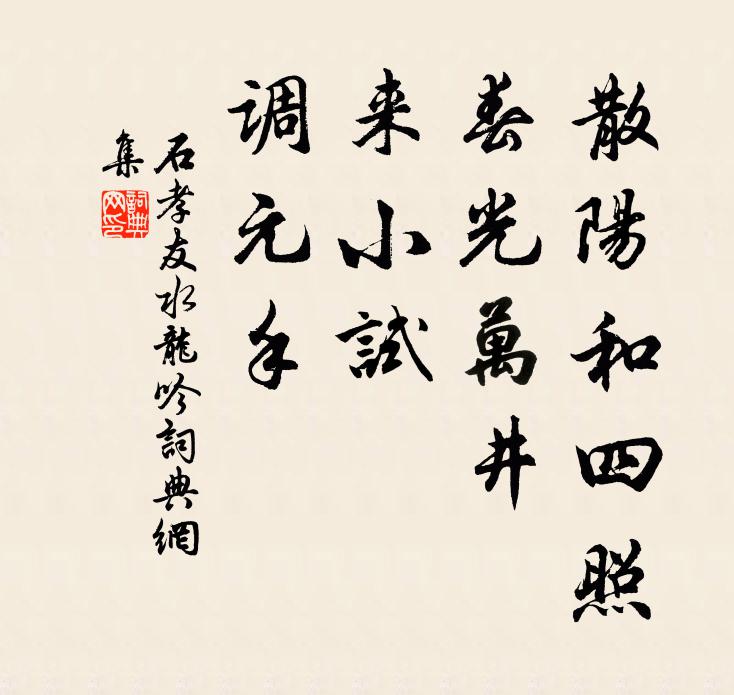 散陽和四照
春光萬井
来小試
调元手
石孝友水龍吟詞典網
集
詞典
网印